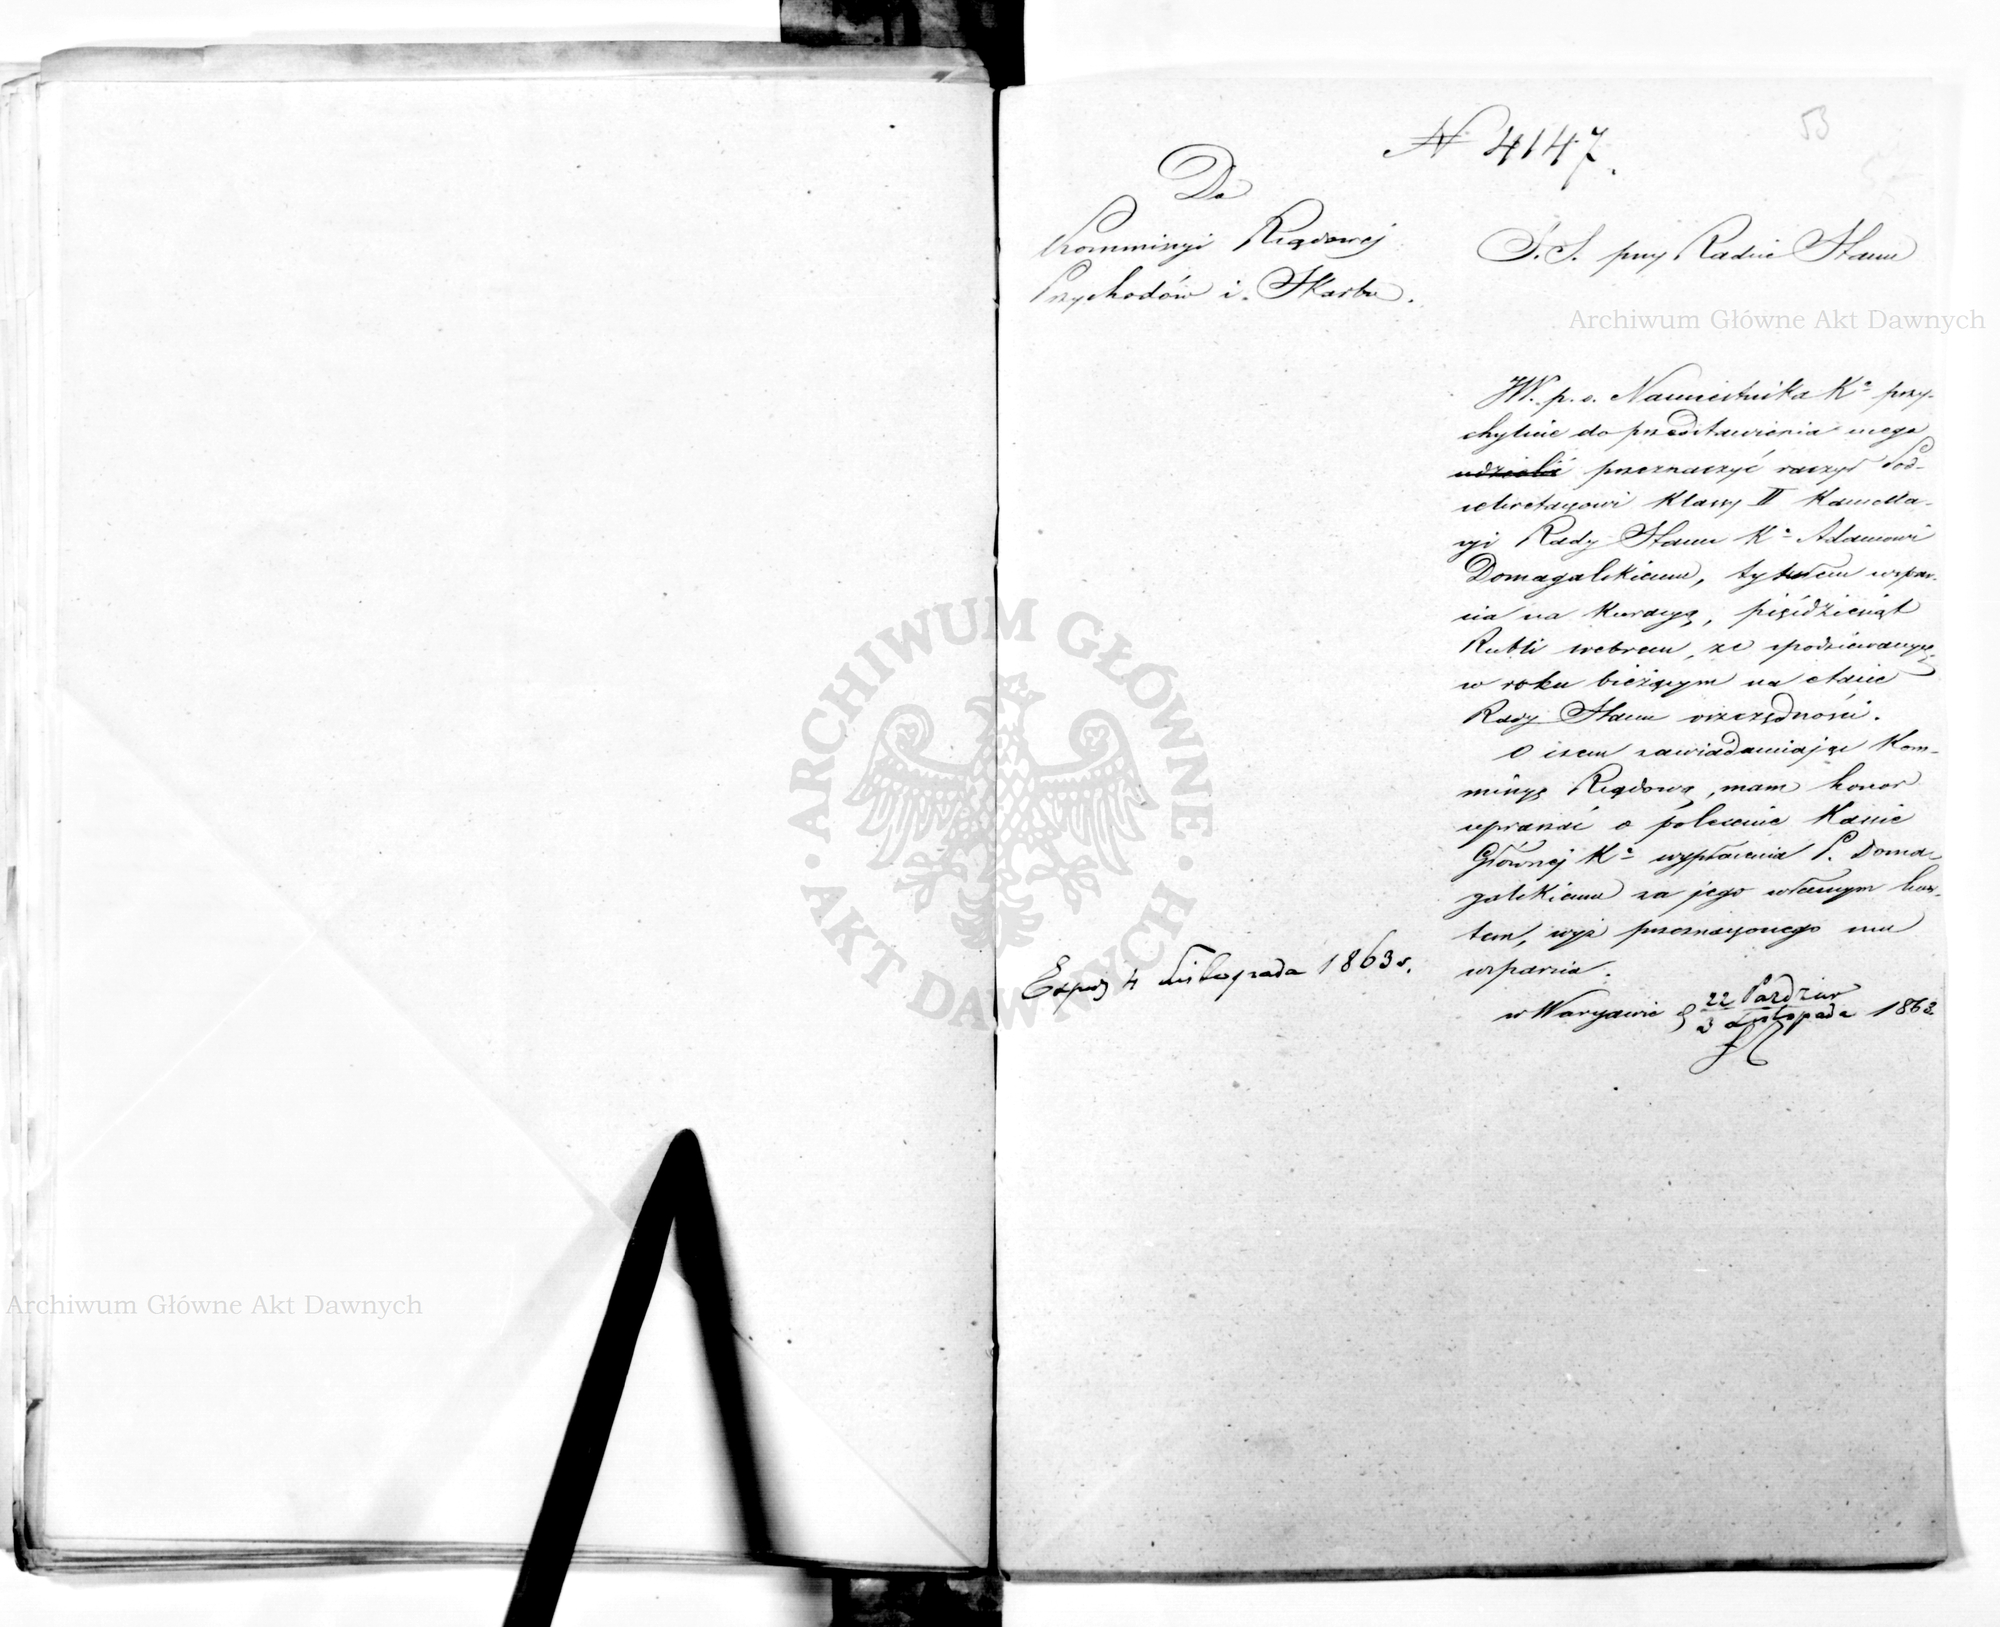 53
N 4147.
Do
Kommissyi Rządowej
Przychodów i Skarbu.
S. S. przy Radzie Stanu
JW. p. o. Namiestnika Kᵃ przy-
chylnie do przedstawienia mego
udzielić przeznaczyć raczył Pod-
sekretarzowi Klassy II Kancella-
ryi Rady Stanu Kᵃ Adamowi
Domagalskiemu, tytułem wspar-
cia na kuracyą, pięćdziesiąt
Rubli srebrem, ze spodziewanych
w roku bieżącym na etacie
Rady Stanu oszczędności.
O czem zawiadamiając Kom-
missyę Rządową, mam honor
upraszać o polecenie Kassie
Głównej Kᵃ wypłacenia P. Doma-
galskiemu za jego własnym kwi-
tem, wyż przeznaczonego mu
wsparcia.
w Warszawie d 22 Paździer
3 Listopada 1863
Exped 4 Listopada 1863 r.
Archiwum Główne Akt Dawnych
ARCHIWUM GŁÓWNE AKT DAWNYCH
Archiwum Główne Akt Dawnych